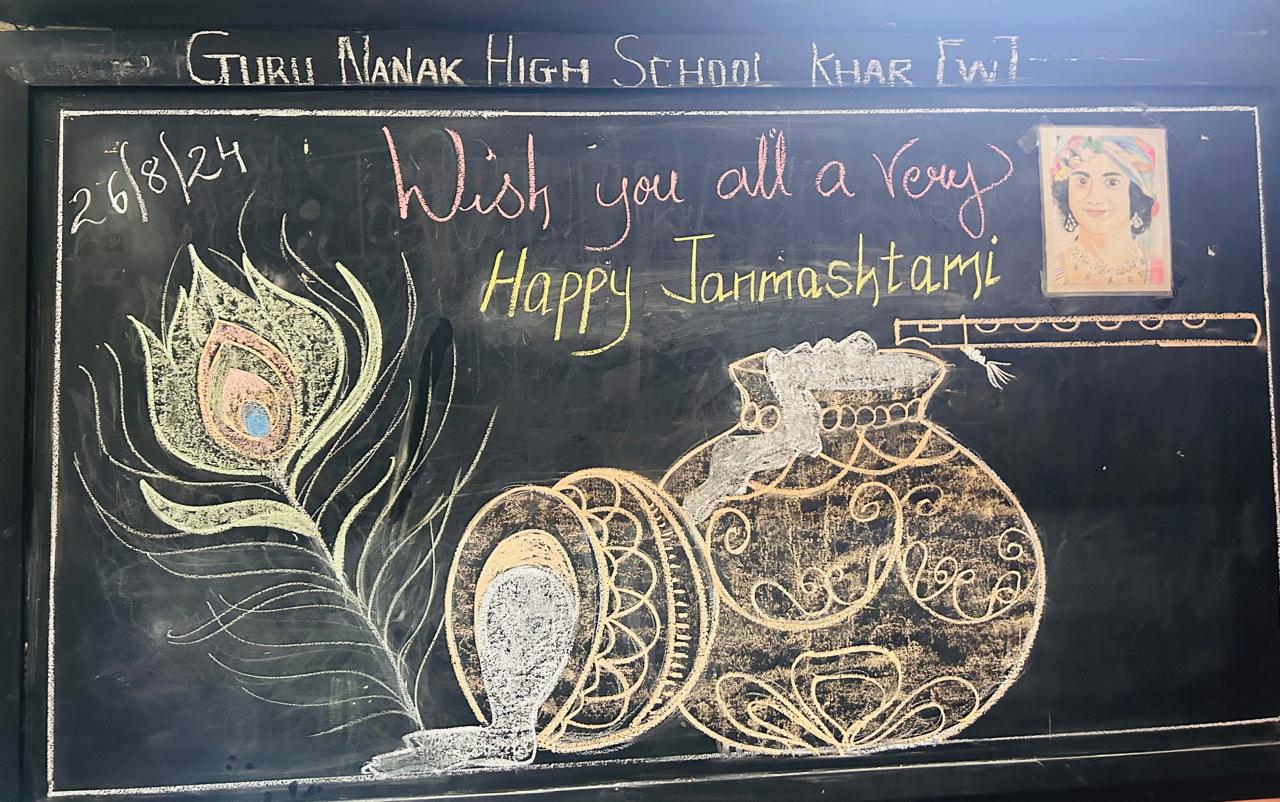 GURU NANAK HIGH SCHOOL KHAR [W]
26/8/24
Wish you all a Very
Happy Janmashtami